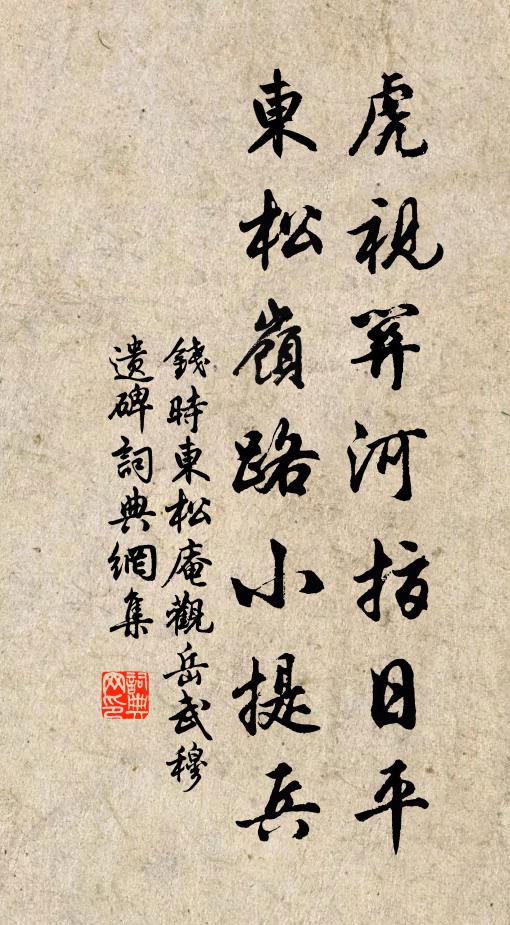 虎視關河指日平
東松嶺路小提兵
錢時東松庵觀岳武穆
遺碑詞典網集
詞典網印